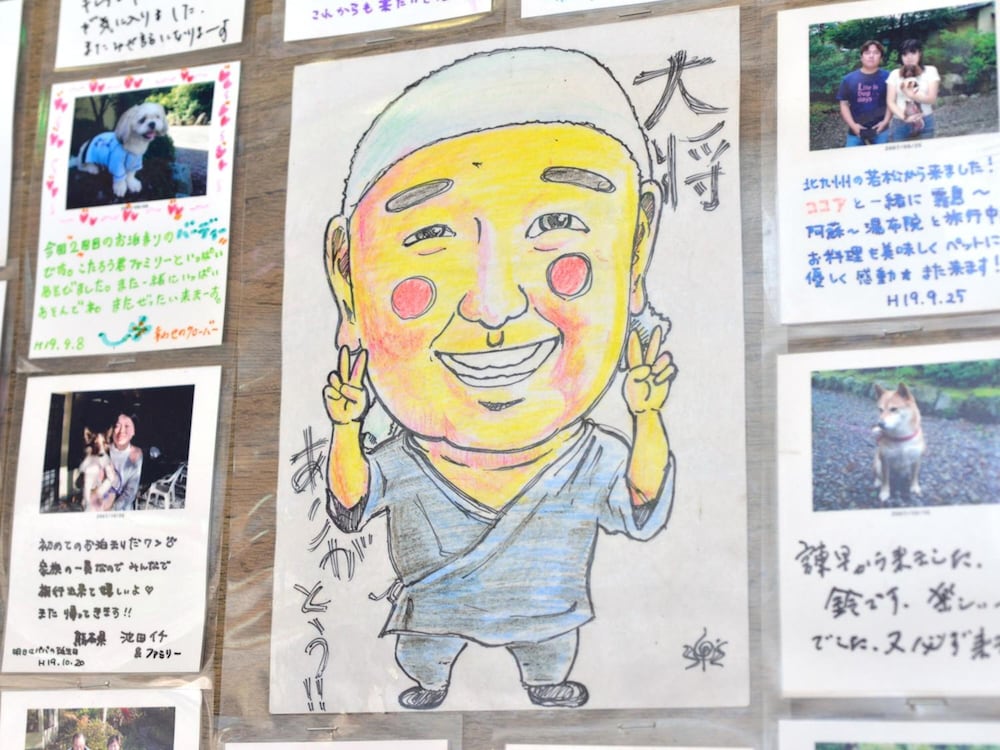 が気に入りました。
またお世話になりまーす
これからも来たい
今回2回目のお泊まりの バーディー
です。こたろう君ファミリーといっぱい
あそびました。また一緒にいっぱい
あそんでね またぜったい来まーす。
H19.9.8
幸わせのクローバー
初めてのお泊まりだワン
家族の一員なので みんなで
旅行出来て嬉しいよ♡
また 帰ってきます!!
熊本県 池田イチ
& ファミリー
明日はパパの誕生日
H19.10.20
大将
ありがとう!!
Life is
Dog
days
2007/09/25
北九州の若松から来ました!
ココアと一緒に 霧島〜
阿蘇〜湯布院と旅行中
お料理も美味しくペットに
優しく 感動★ また来ます!
H19.9.25
諫早から来ました。
鈴です。楽しい
でした。又必ず来